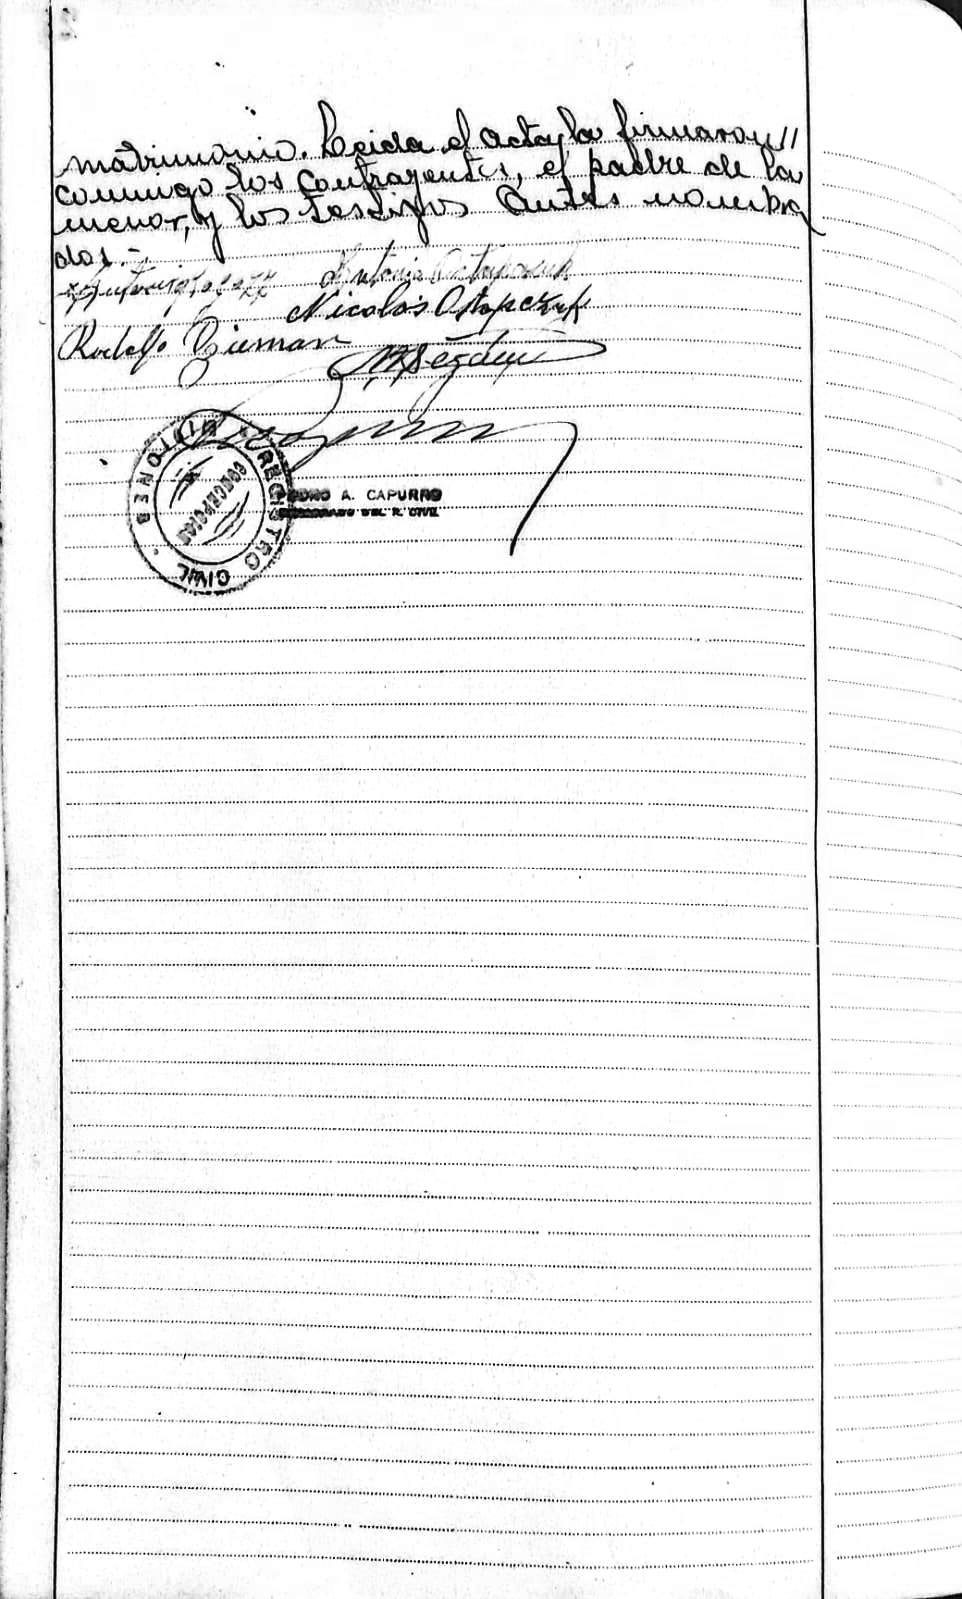 matrimonio. Leida el acta, la firmaron //
conmigo los contrayentes, el padre de la
menor, y los testigos antes nombra
dos.-
Antonia
Nicolás Ostapczuk
Rodolfo
MISIONES
REGISTRO CIVIL
CONCEPCION
PEDRO A. CAPURRO
ENCARGADO DEL R. CIVIL